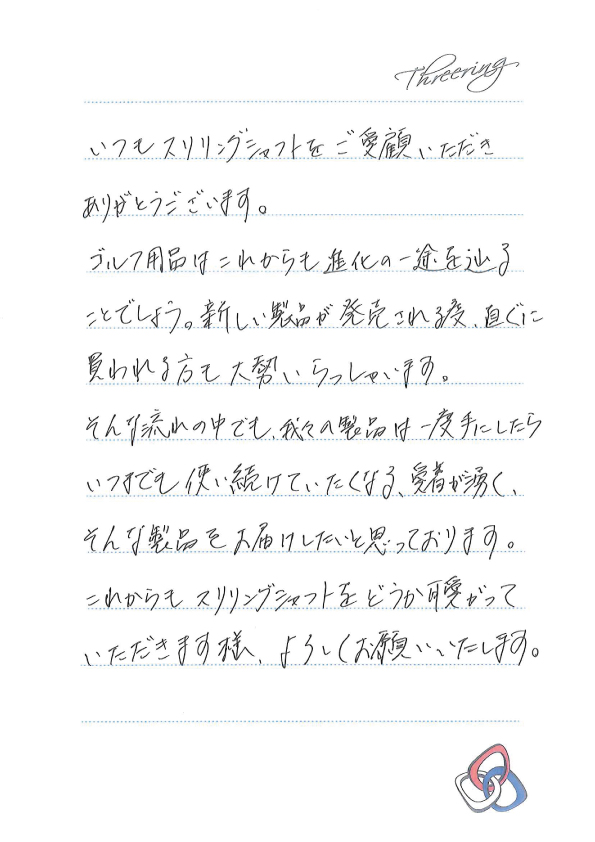 Threering
いつもスリリングシャフトをご愛顧いただき
ありがとうございます。
ゴルフ用品はこれからも進化の一途を辿る
ことでしょう。新しい製品が発売される度、直ぐに
買われる方も大勢いらっしゃいます。
そんな流れの中でも、我々の製品は一度手にしたら
いつまでも使い続けていたくなる、愛着が湧く、
そんな製品をお届けしたいと思っております。
これからもスリリングシャフトをどうか可愛がって
いただきます様、よろしくお願いいたします。